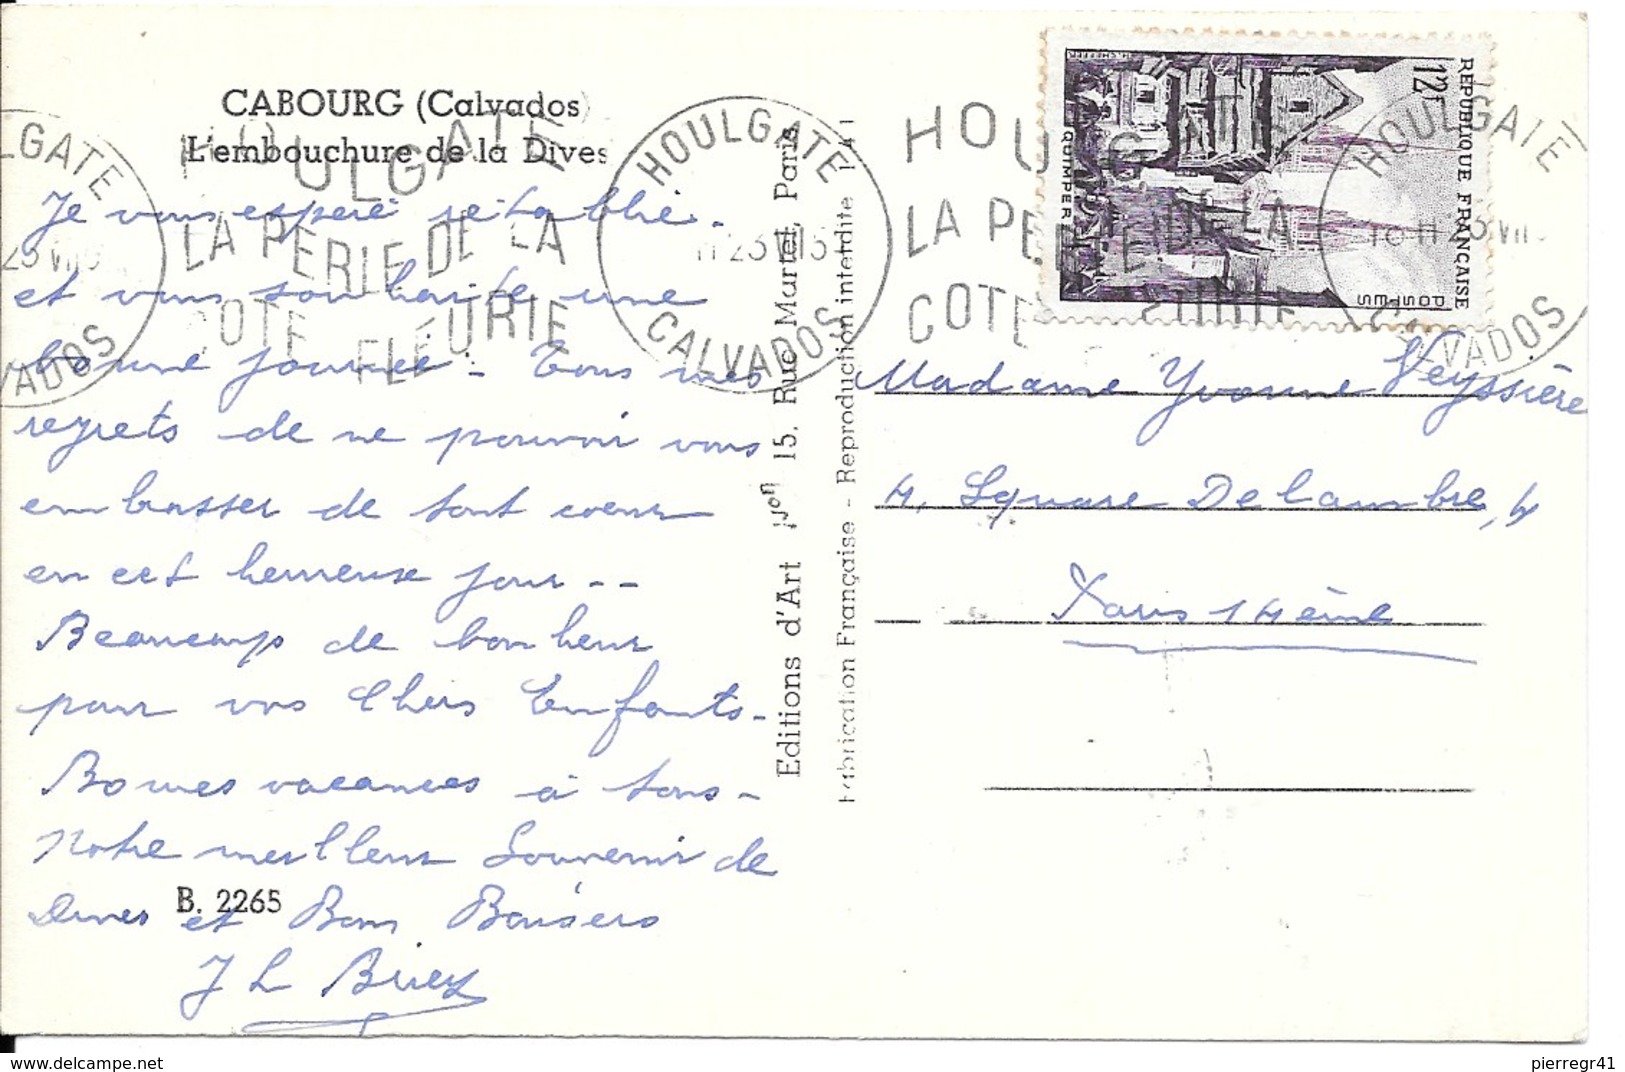 CABOURG (Calvados)
L'embouchure de la Dives
Je vous espère rétablie.
et vous souhaite une
bonne journée - Tous mes
regrets de ne pouvoir vous
embrasser de tout coeur
en cet heureuse jour --
Beaucoup de bonheur
pour vos Chers Enfants -
Bonnes vacances à tous -
Notre meilleur Souvenir de
Dives et Bons Baisers
B. 2265
J L
Editions d'Art 15, Rue Martel, Paris
Fabrication Française - Reproduction interdite
HOULGATE
LA PERLE DE LA
COTE FLEURIE
HOULGATE
CALVADOS
HOULGATE
LA PERLE DE LA
COTE FLEURIE
HOULGATE
CALVADOS
REPUBLIQUE FRANÇAISE
12F
POSTES
QUIMPER
Madame Yvonne Veyssière
4, Square Delambre, 4
Paris 14ème
pierregr41